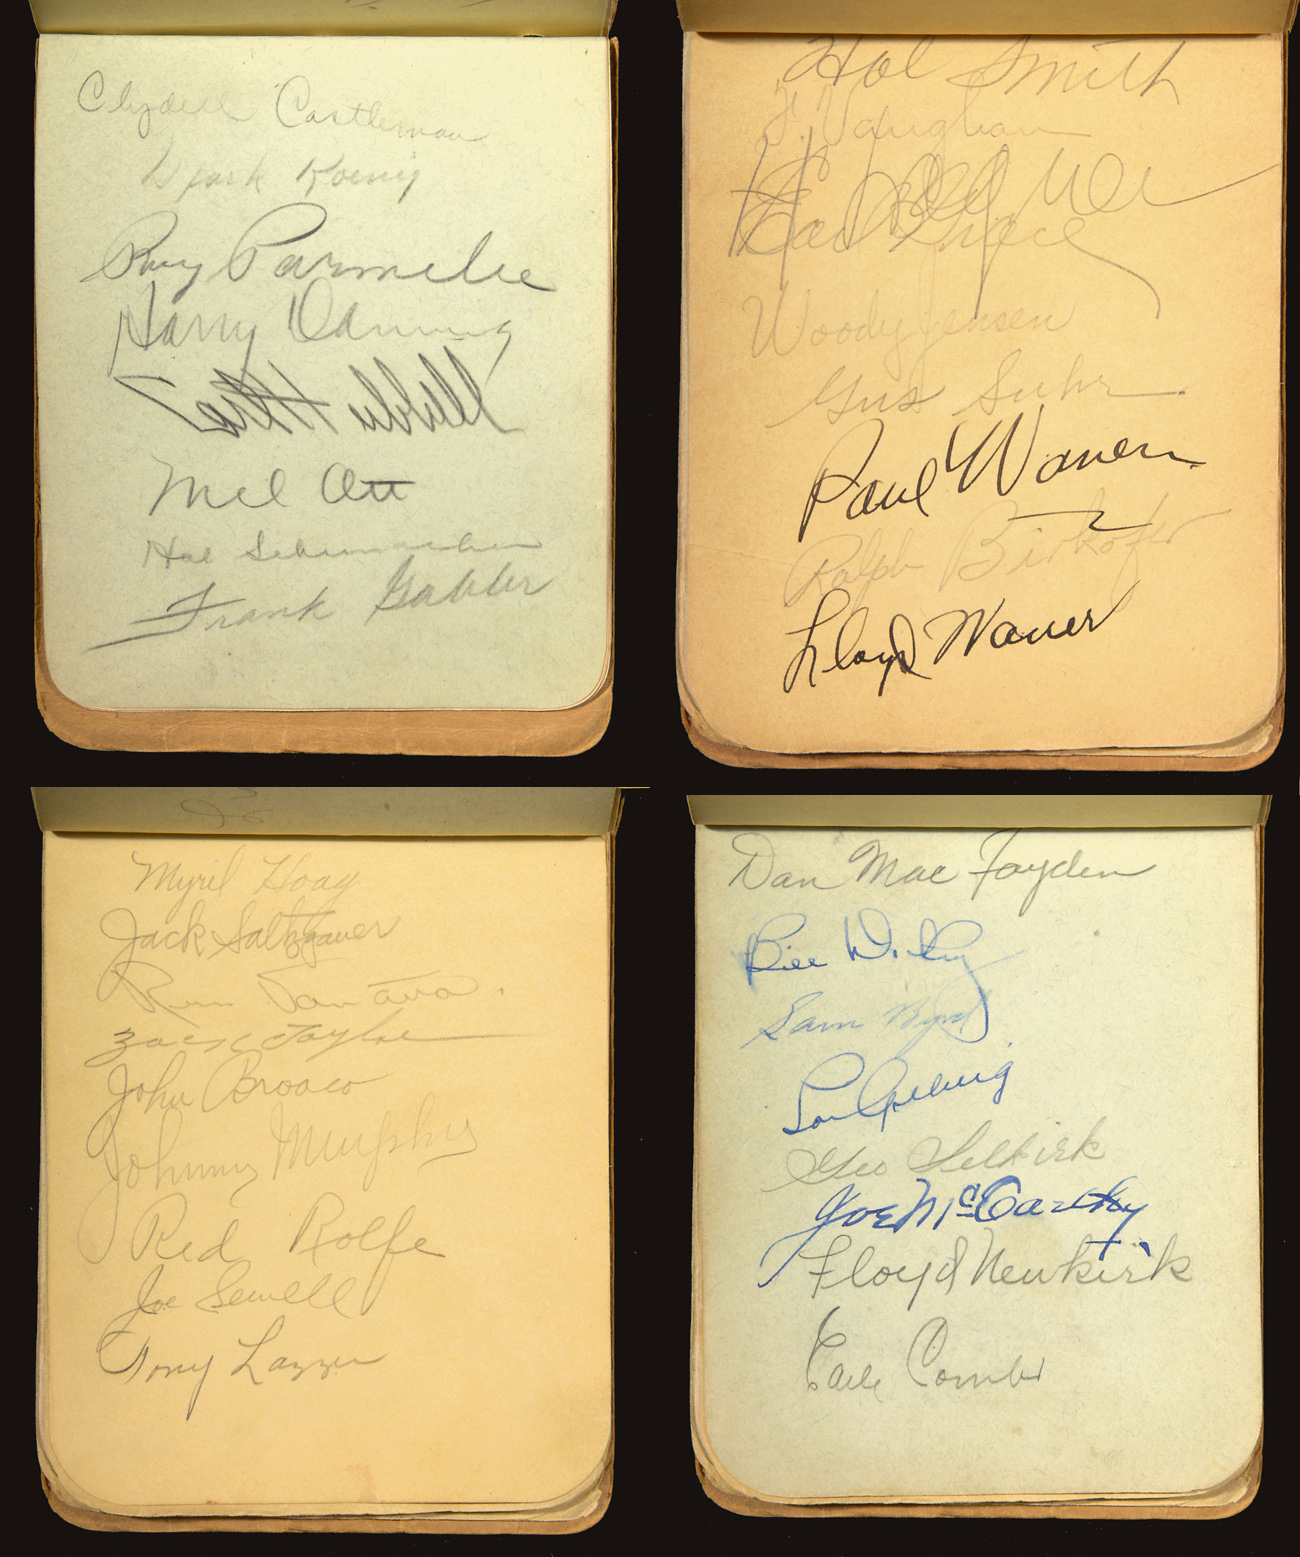 Clydell Castleman
Mark Koenig
Roy Parmelee
Harry Danning
Carl Hubbell
Mel Ott
Hal Schumacher
Frank Gabler
Hal Smith
F. Vaughan
Earl Grace
Woody Jensen
Gus Suhr
Paul Waner
Ralph Birkofer
Lloyd Waner
Myril Hoag
Jack Saltzgaver
Russ Van Atta
Zack Taylor
John Broaca
Johnny Murphy
Red Rolfe
Joe Sewell
Tony Lazzeri
Dan MacFayden
Bill Dickey
Sam Byrd
Lou Gehrig
Geo Selkirk
Joe McCarthy
Floyd Newkirk
Earle Combs